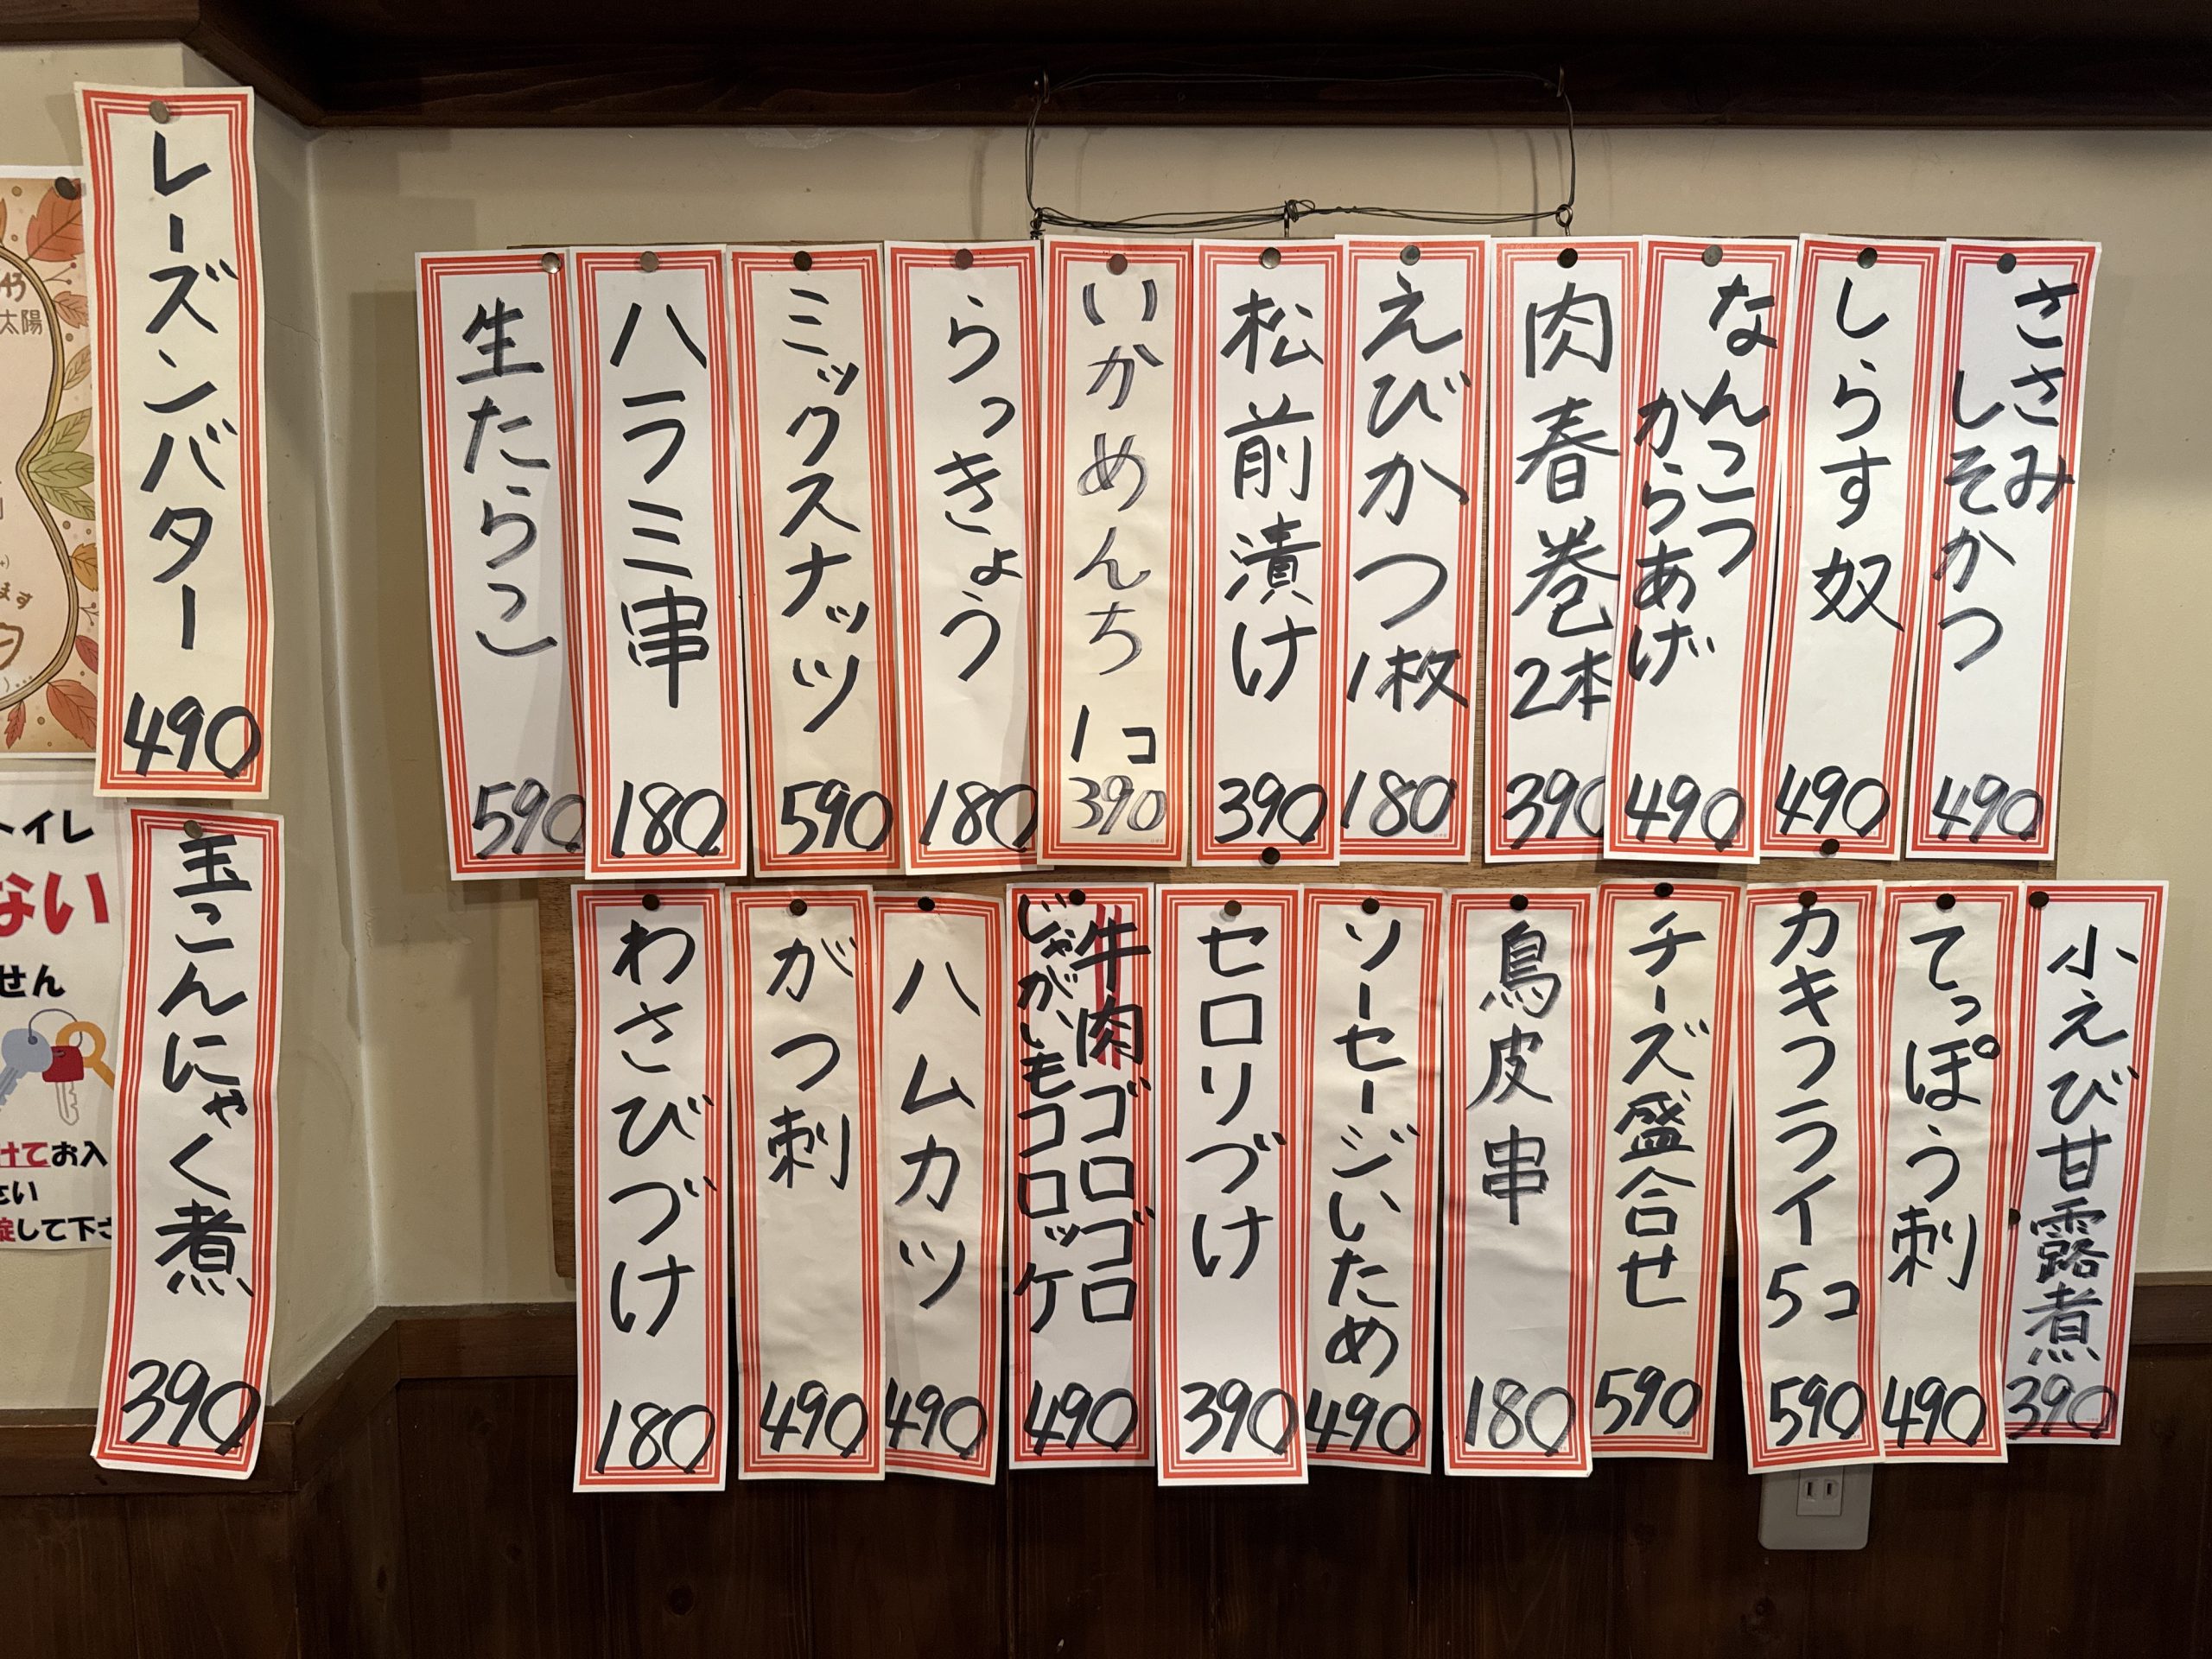 ささみ
しそかつ
490
しらす奴
490
なんこつ
からあげ
490
肉春巻2本
390
えびかつ1枚
180
松前漬け
390
いかめんち1コ
390
らっきょう
180
ミックスナッツ
590
ハラミ串
180
生たらこ
590
レーズンバター
490
小えび甘露煮
390
てっぽう刺
490
カキフライ5コ
590
チーズ盛合せ
590
鳥皮串
180
ソーセージいため
490
セロリづけ
390
牛肉ゴロゴロ
じゃがいもコロッケ
490
ハムカツ
490
がつ刺
490
わさびづけ
180
玉こんにゃく煮
390
太陽
ます
トイレ
ない
せん
けてお入
さい
錠して下さ